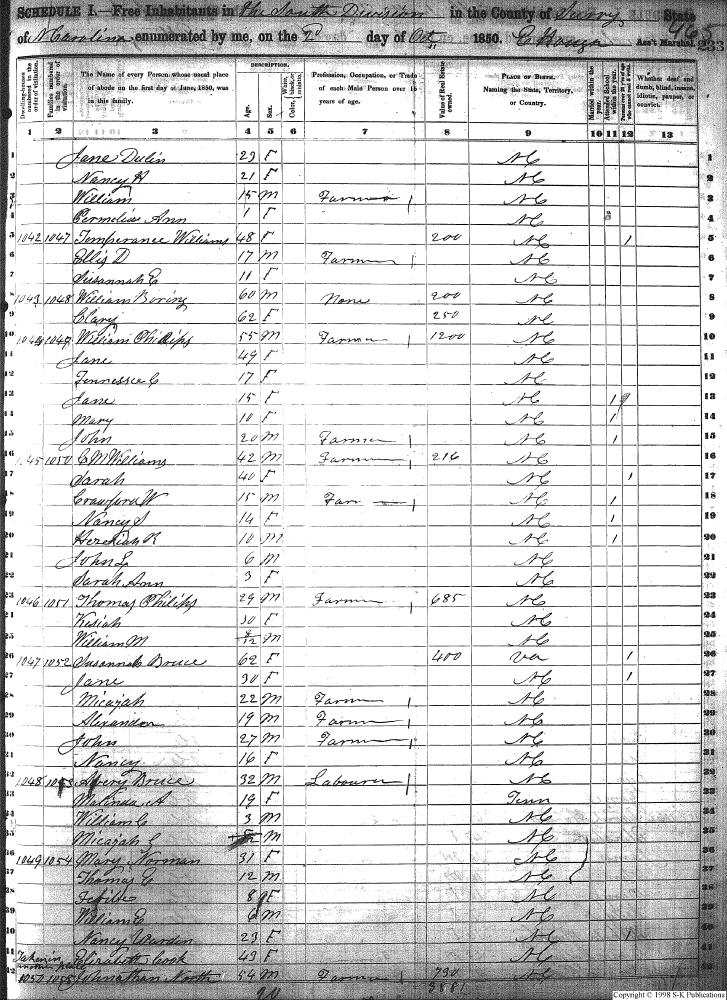 SCHEDULE I.—Free Inhabitants in the South Division in the County of Surry State
of N Carolina enumerated by me, on the 2d day of Oct 1850. Ass't Marshal. 465 233
Dwelling-houses numbered in the order of visitation.
Families numbered in the order of visitation.
The Name of every Person whose usual place of abode on the first day of June, 1850, was in this family.
DESCRIPTION.
Age.
Sex.
White, black, or mulatto.
Color,
Profession, Occupation, or Trade of each Male Person over 15 years of age.
Value of Real Estate owned.
PLACE OF BIRTH. Naming the State, Territory, or Country.
Married within the year.
Attended School within the year.
Whether deaf and dumb, blind, insane, idiotic, pauper, or convict.
1 2 3 4 5 6 7 8 9 10 11 12 13
1 Jane Dulin 23 F NC 1
2 Nancy H 21 F NC 2
3 William 15 M Farmer 1 NC 3
4 Permelia Ann 1 F NC 4
5 1042 1047 Temperance Williams 48 F 200 NC 1 5
6 Ellis D 17 M Farmer 1 NC 6
7 Susannah E 11 F NC 7
8 1043 1048 William Boring 60 M None 200 NC 8
9 Clary 62 F 250 NC 9
10 1044 1049 William Phillips 55 M Farmer 1 1200 NC 10
11 Jane 49 F NC 11
12 Tennessee C 17 F NC 12
13 Jane 15 F NC 1 13
14 Mary 10 F NC 1 14
15 John 20 M Farmer 1 NC 1 15
16 1045 1050 C M Williams 42 M Farmer 1 216 NC 16
17 Sarah 40 F NC 1 17
18 Crawford W 15 M Far 1 NC 1 18
19 Nancy S 14 F NC 1 19
20 Hezekiah R 10 M NC 1 20
21 John L 6 M NC 21
22 Sarah Ann 3 F NC 22
23 1046 1051 Thomas Philips 29 M Farmer 1 685 NC 23
24 Kisiah 30 F NC 24
25 William M M NC 25
26 1047 1052 Susannah Bruce 62 F 400 Va 1 26
27 Jane 30 F NC 1 27
28 Micajah 22 M Farmer 1 NC 28
29 Alexander 19 M Farmer 1 NC 29
30 John 27 M Farmer 1 NC 30
31 Nancy 16 F NC 31
32 1048 1053 Avery Bruce 32 M Labourer 1 NC 32
33 Malinda A 19 F Tenn 33
34 William C 3 M NC 34
35 Micajah M NC 35
36 1049 1054 Mary Norman 31 F NC 36
37 Thomas C 12 M NC 37
38 8 F NC 38
39 William E 6 M NC 39
40 Nancy Warden 23 F NC 1 40
41 Taken in another place Elizabeth Cook 43 F NC 41
42 1050 1055 Johnathan North 54 M Farmer 1 730 NC 42
Copyright © 1998 S-K Publications